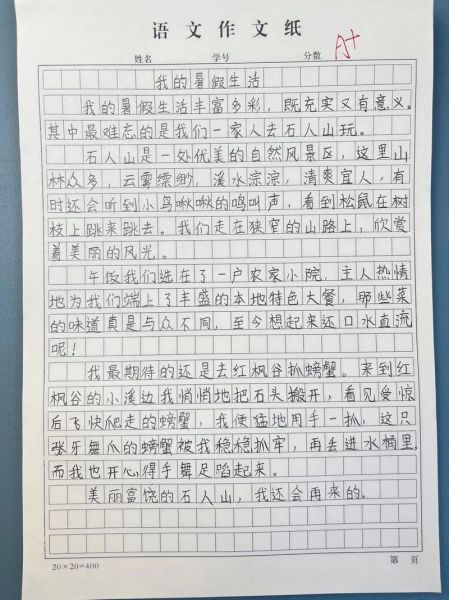 语文作文纸
姓名 学号 分数 A+
我的暑假生活
我的暑假生活丰富多彩，既充实又有意义。
其中最难忘的是我们一家人去石人山玩。
石人山是一处优美的自然风景区，这里山
林众多，云雾缥缈，溪水淙淙，清爽宜人，有
时还会听到小鸟啾啾的鸣叫声，看到松鼠在树
枝上跳来跳去。我们走在狭窄的山路上，欣赏
着美丽的风光。
午饭我们选在了一户农家小院，主人热情
地为我们端上了丰盛的本地特色大餐，那些菜
的味道真是与众不同，至今想起来还口水直流
呢！
我最期待的还是去红枫谷抓螃蟹。来到红
枫谷的小溪边我悄悄地把石头搬开，看见受惊
后飞快爬走的螃蟹，我便猛地用手一抓，这只
张牙舞爪的螃蟹被我稳稳抓牢，再丢进水桶里，
而我也开心得手舞足蹈起来。
美丽富饶的石人山，我还会再来的。
20×20=400 第 页